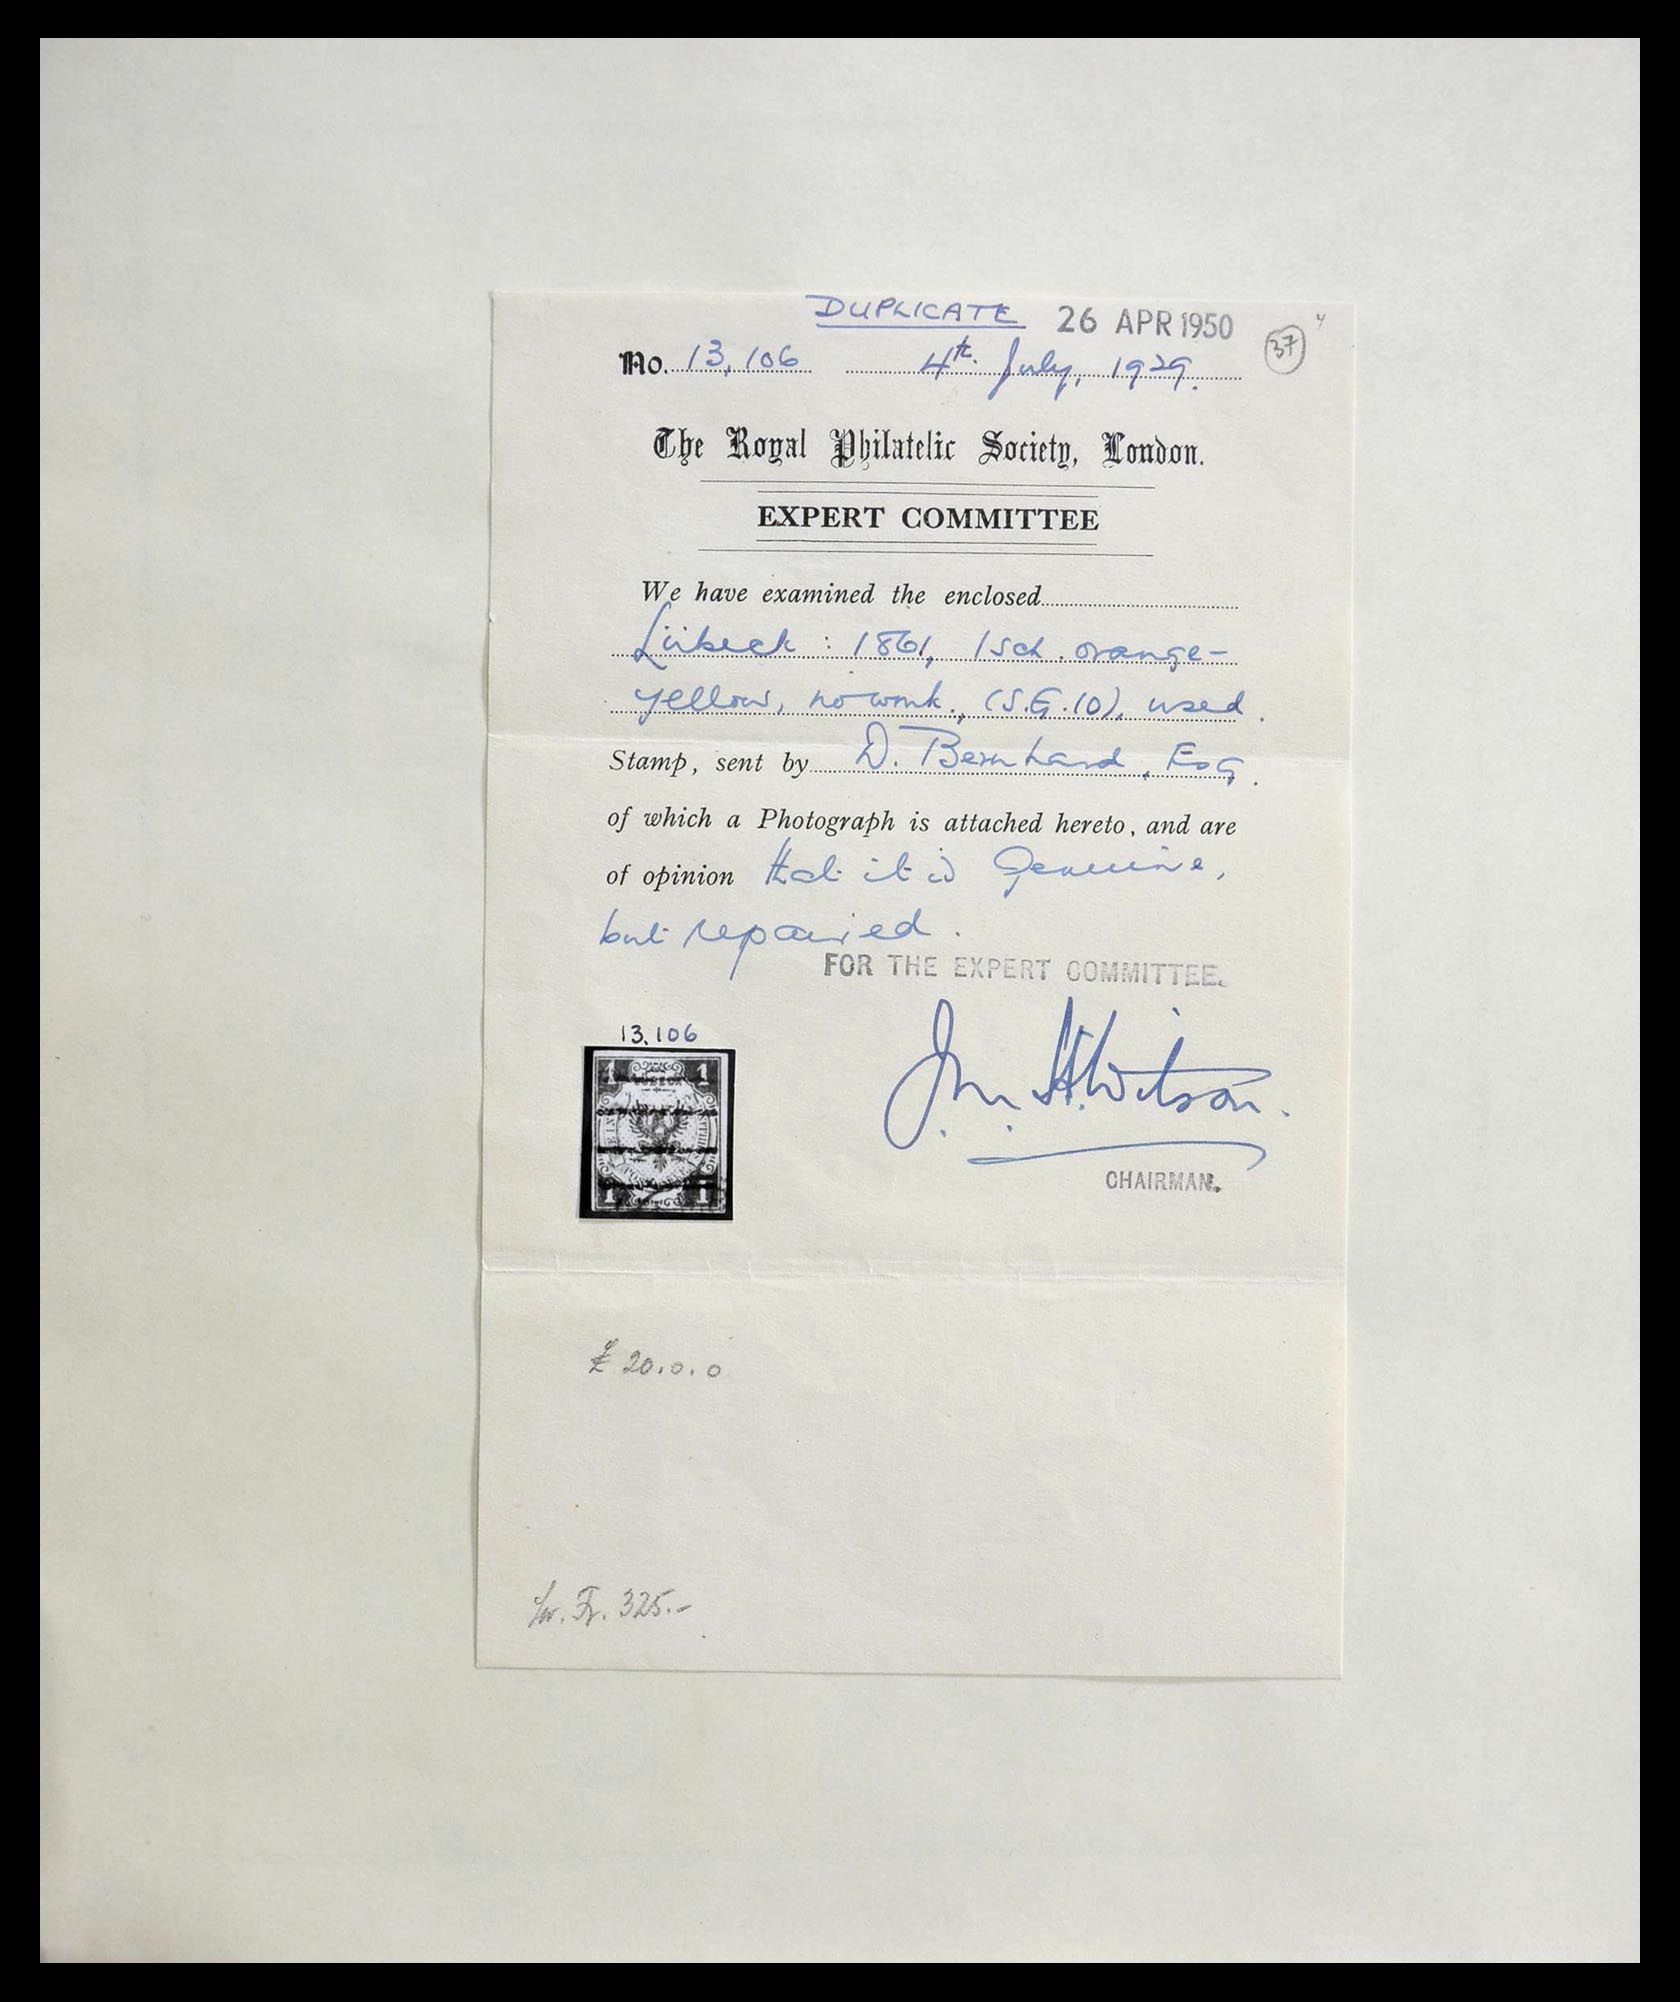 DUPLICATE 26 APR 1950
No. 13,106 4th July, 1929. 37
The Royal Philatelic Society, London.
EXPERT COMMITTEE
We have examined the enclosed
Lübeck : 1861, 1 sch. orange-
yellow, no wmk., (S.G.10), used.
Stamp, sent by D. Bernhard, Esq.
of which a Photograph is attached hereto, and are
of opinion that it is Genuine,
but repaired.
FOR THE EXPERT COMMITTEE.
13,106
1 1
1 1
Jn. H. Wilson.
CHAIRMAN.
£ 20.0.0
Sw. Fr. 325.-